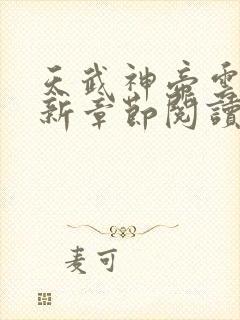 天武神帝雲
新章節閱讀
麦可